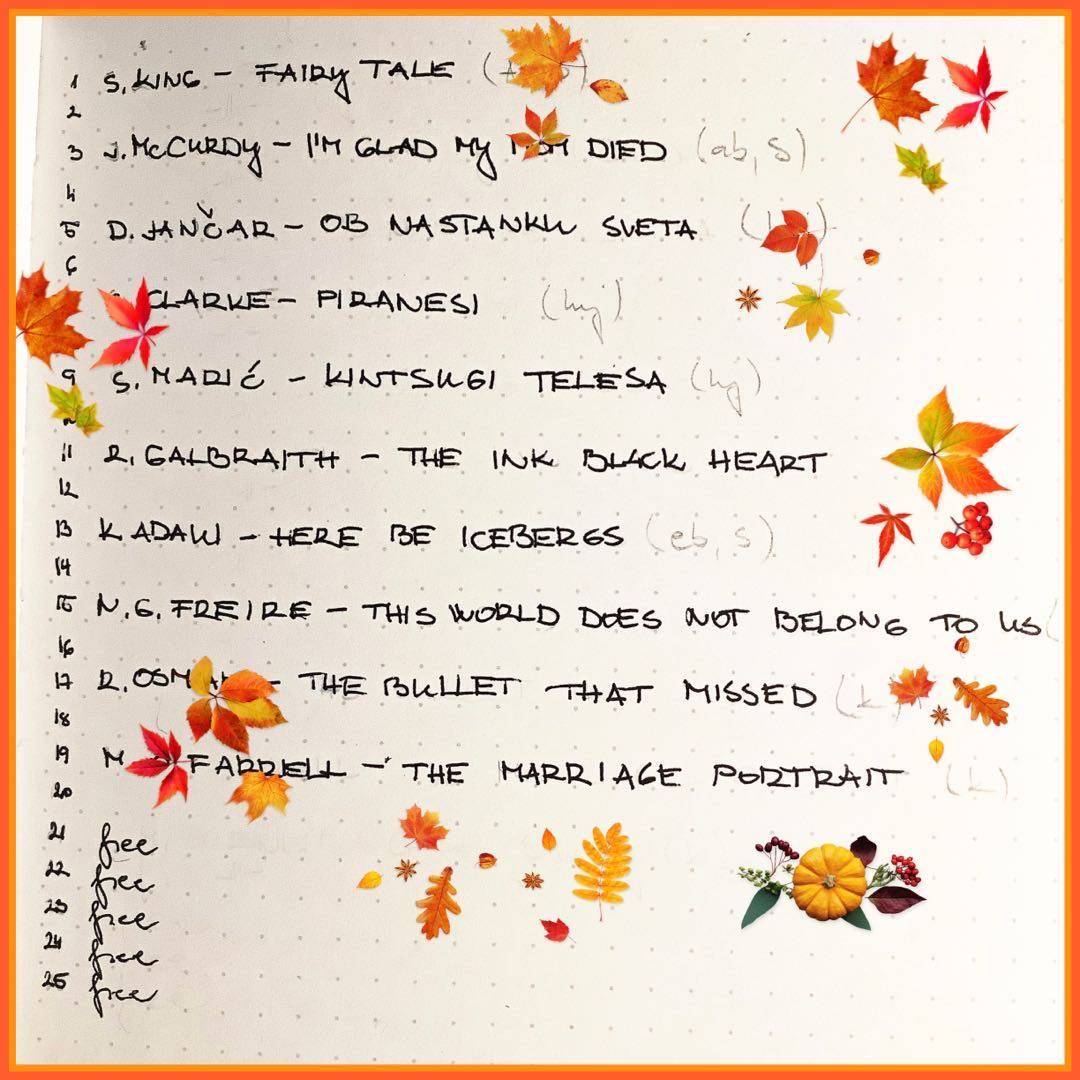 1 S. KING – FAIRY TALE
2
3 J. McCURDY – I'M GLAD MY MOM DIED (ab, S)
4
5 D. JANČAR – OB NASTANKU SVETA
6
CLARKE – PIRANESI (knj)
9 S. MARIĆ – KINTSUGI TELESA (knj)
11 R. GALBRAITH – THE INK BLACK HEART
12
13 K. ADAUI – HERE BE ICEBERGS (eb, S)
14
15 N. G. FREIRE – THIS WORLD DOES NOT BELONG TO US
16
17 R. OSMAN – THE BULLET THAT MISSED (k
18
19 M. FARRELL – THE MARRIAGE PORTRAIT (k)
20
21 free
22 free
23 free
24 free
25 free